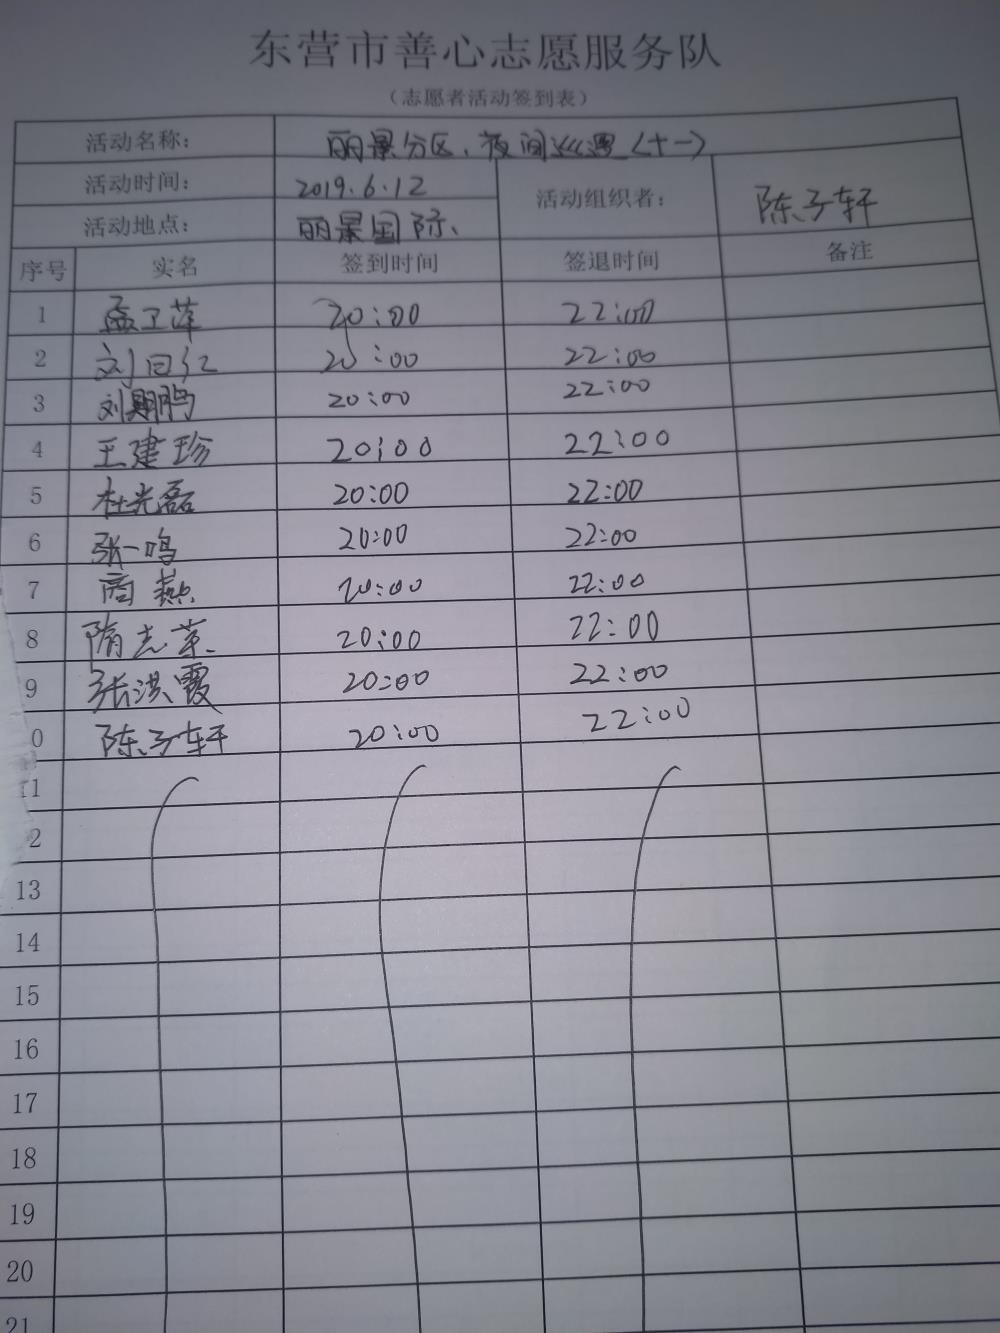 东营市善心志愿服务队
（志愿者活动签到表）
活动名称： 丽景分区、夜间巡逻（十一）
活动时间： 2019.6.12 活动组织者： 陈子轩
活动地点： 丽景国际、
序号 实名 签到时间 签退时间 备注
1 孟卫萍 20:00 22:00
2 刘日红 20:00 22:00
3 刘鹏 20:00 22:00
4 王建珍 20:00 22:00
5 杜光磊 20:00 22:00
6 张一鸣 20:00 22:00
7 商燕 20:00 22:00
8 隋志荣 20:00 22:00
9 张洪霞 20:00 22:00
0 陈子轩 20:00 22:00
11
2
13
14
15
16
17
18
19
20
21